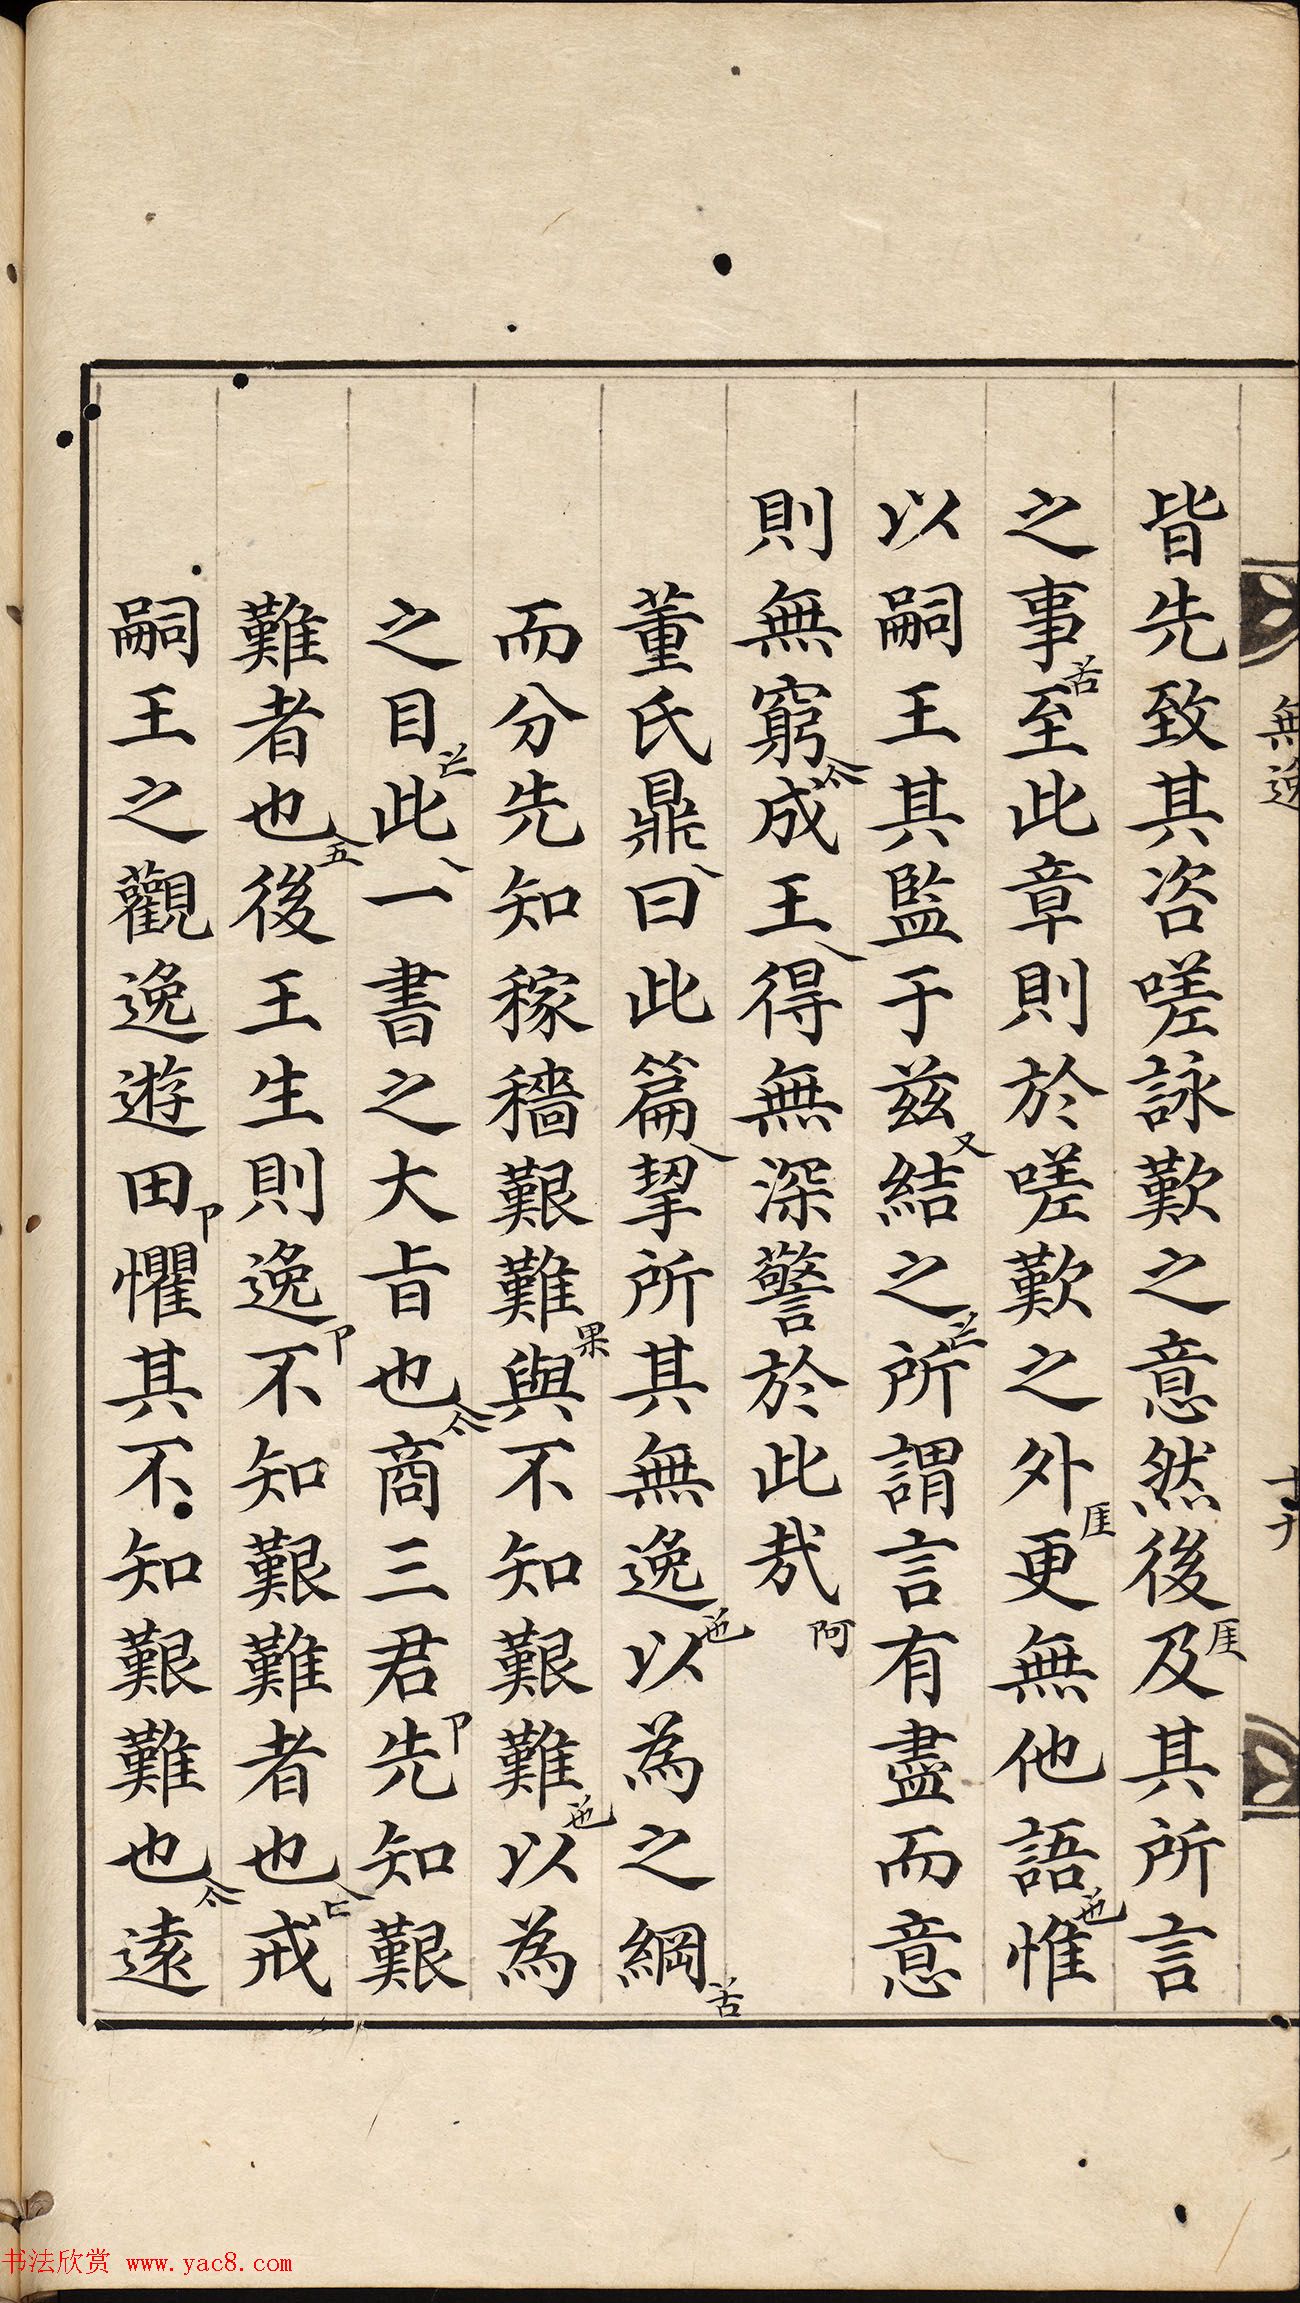 無逸
皆先致其咨嗟詠歎之意然後厓及其所言
之事舌至此章則於嗟歎之外厓更無他語也惟
以嗣王其監于兹又結之所謂言有盡而意
則無窮成王得無深警於此㢤阿
董氏鼎曰此篇挈所其無逸也以為之綱舌
而分先知稼穡艱難果與不知艱難也以為
之目此一書之大旨也商三君先卩知艱
難者也五後王生則逸卩不知艱難者也戒
嗣王之觀逸遊田卩懼其不知艱難也遠
书法欣赏 www.yac8.com